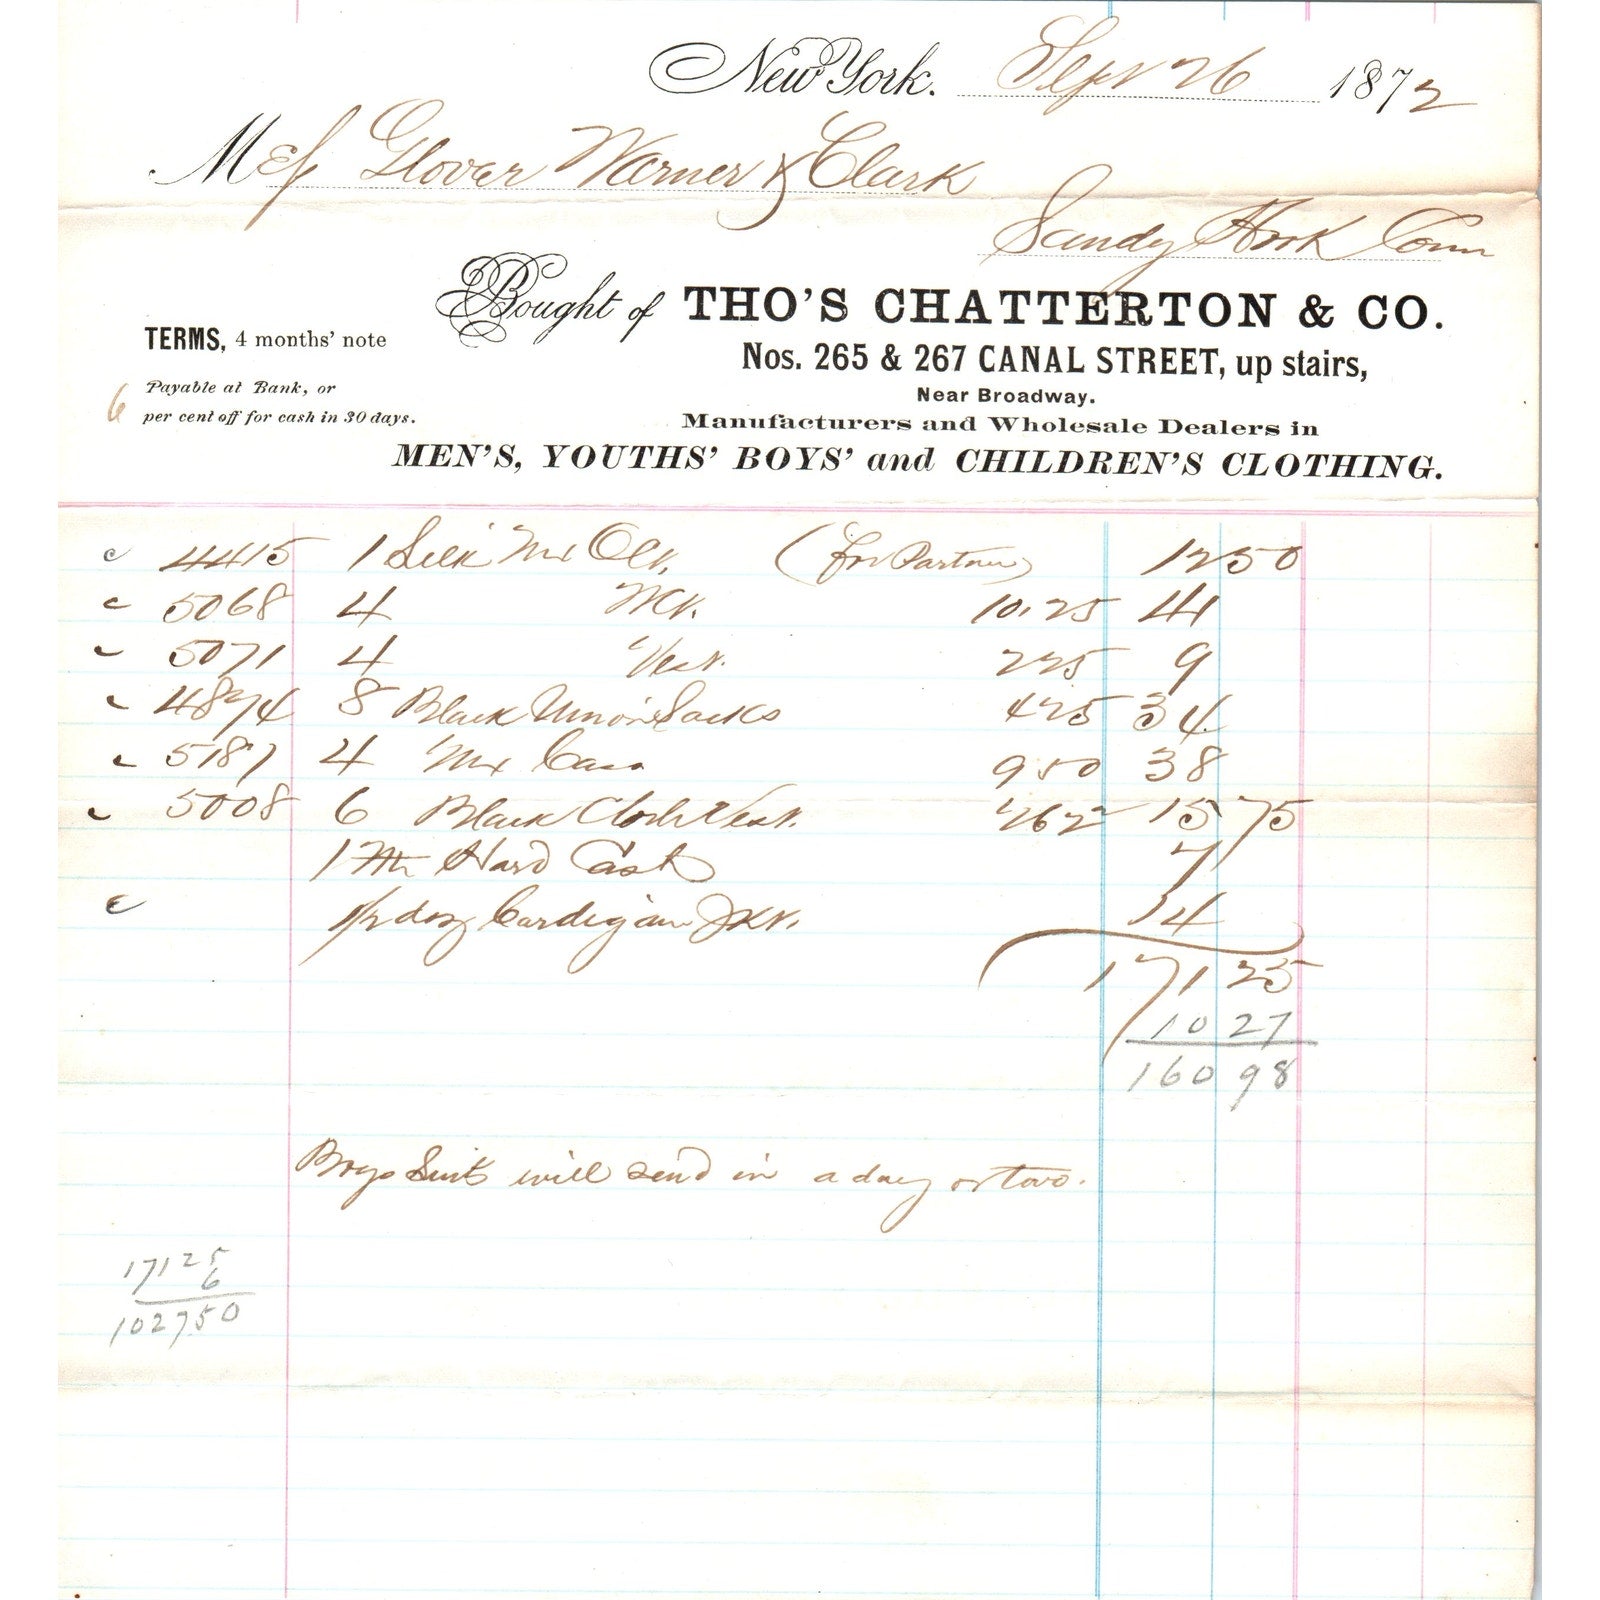 New York. Sept 26 1872
Mess Glover Warner & Clark
Sandy Hook Conn
Bought of THO'S CHATTERTON & CO.
Nos. 265 & 267 CANAL STREET, up stairs,
Near Broadway.
Manufacturers and Wholesale Dealers in
MEN'S, YOUTHS' BOYS' and CHILDREN'S CLOTHING.
TERMS, 4 months' note
Payable at Bank, or
6 per cent off for cash in 30 days.
4415 1 Silk Mx (for Partner) 12 50
5068 4 10.25 41
5071 4 Vest. 225 9
4874 8 Black Union Sacks 425 34
5187 4 Mx Cass 950 38
5008 6 Black Cloth Vest. 262 15 75
1 Hard 7
1/2 doz Cardigan Jkt. 14
171 25
10 27
160 98
Boys Suits will send in a day or two.
17125
6
102750